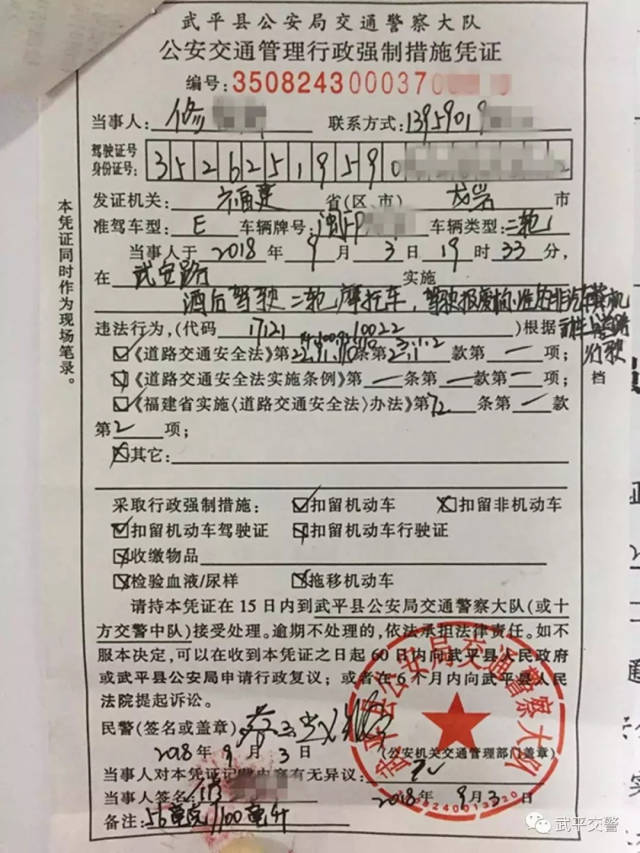 武平县公安局交通警察大队
公安交通管理行政强制措施凭证
编号:35082430003​70
当事人: 修 联系方式: 1395901
驾驶证号
身份证号: 35262519590 2
发证机关: 福建 省(区、市) 龙岩 市
准驾车型: E 车辆牌号: 闽FP 车辆类型: 二轮
当事人于 2018 年 9 月 3 日 19 时 33 分,
在 武安路 实施
酒后驾驶二轮摩托车,驾驶报废
违法行为,(代码 17121 10022 )根据
☑《道路交通安全法》第 条第 款第 一 项;
《道路交通安全法实施条例》第 一 条第 一 款第 一 项; 档
☑《福建省实施〈道路交通安全法〉办法》第 72 条第 一 款
第 2 项;
☒其它:
采取行政强制措施: ☑扣留机动车 ☒扣留非机动车
☑扣留机动车驾驶证 扣留机动车行驶证
收缴物品
☑检验血液/尿样 拖移机动车
请持本凭证在15日内到武平县公安局交通警察大队(或十
方交警中队)接受处理。逾期不处理的,依法承担法律责任。如不
服本决定,可以在收到本凭证之日起60日内向武平县人民政府
或武平县公安局申请行政复议;或者在6个月内向武平县人民
法院提起诉讼。
民警(签名或盖章)
2018 年 9 月 3 日 (公安机关交通管理部门盖章)
当事人对本凭证记载内容有无异议:
当事人签名: 修 2018 年 9 月 3 日
备注: 56毫克/100毫升
本凭证同时作为现场笔录。
武平县公安局交通警察大队
武平交警